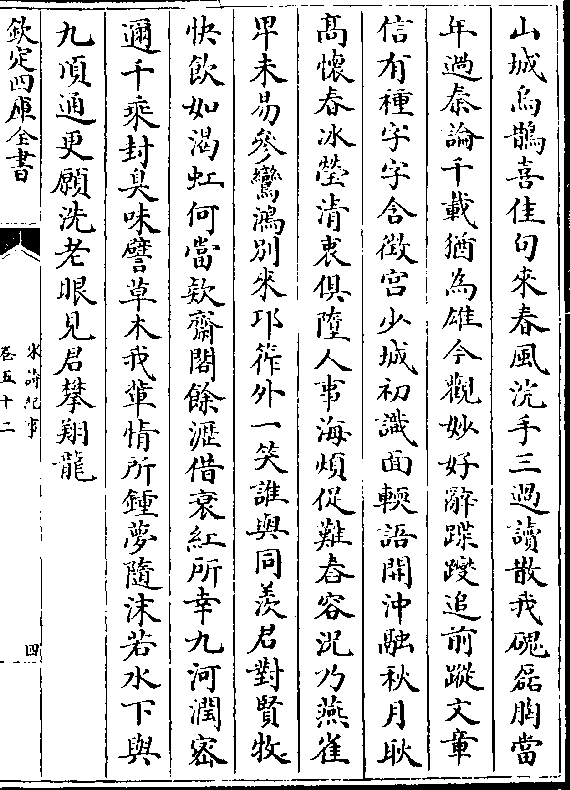 山城烏鵲喜佳句來春風沈手三過讀散我磈磊胸當
年過秦論千載猶為雄今觀妙好辭蹀躞追前蹤文章
信有種字字含徴宫少城初識面輭語開沖融秋月耿
髙懷春冰瑩清衷俱墮人事海煩促難舂容況乃燕雀
卑未易參鸞鴻別來卭筰外一笑誰與同羨君對賢牧
快飲如渴虹何當款齋閣餘瀝借衰紅所幸九河潤宻
邇千乗封臭味譬草木我軰情所鍾夢隨沬若水下與
九頂通更願洗老眼見君攀翔龍
欽定四庫全書
宋詩紀事
卷五十二
四